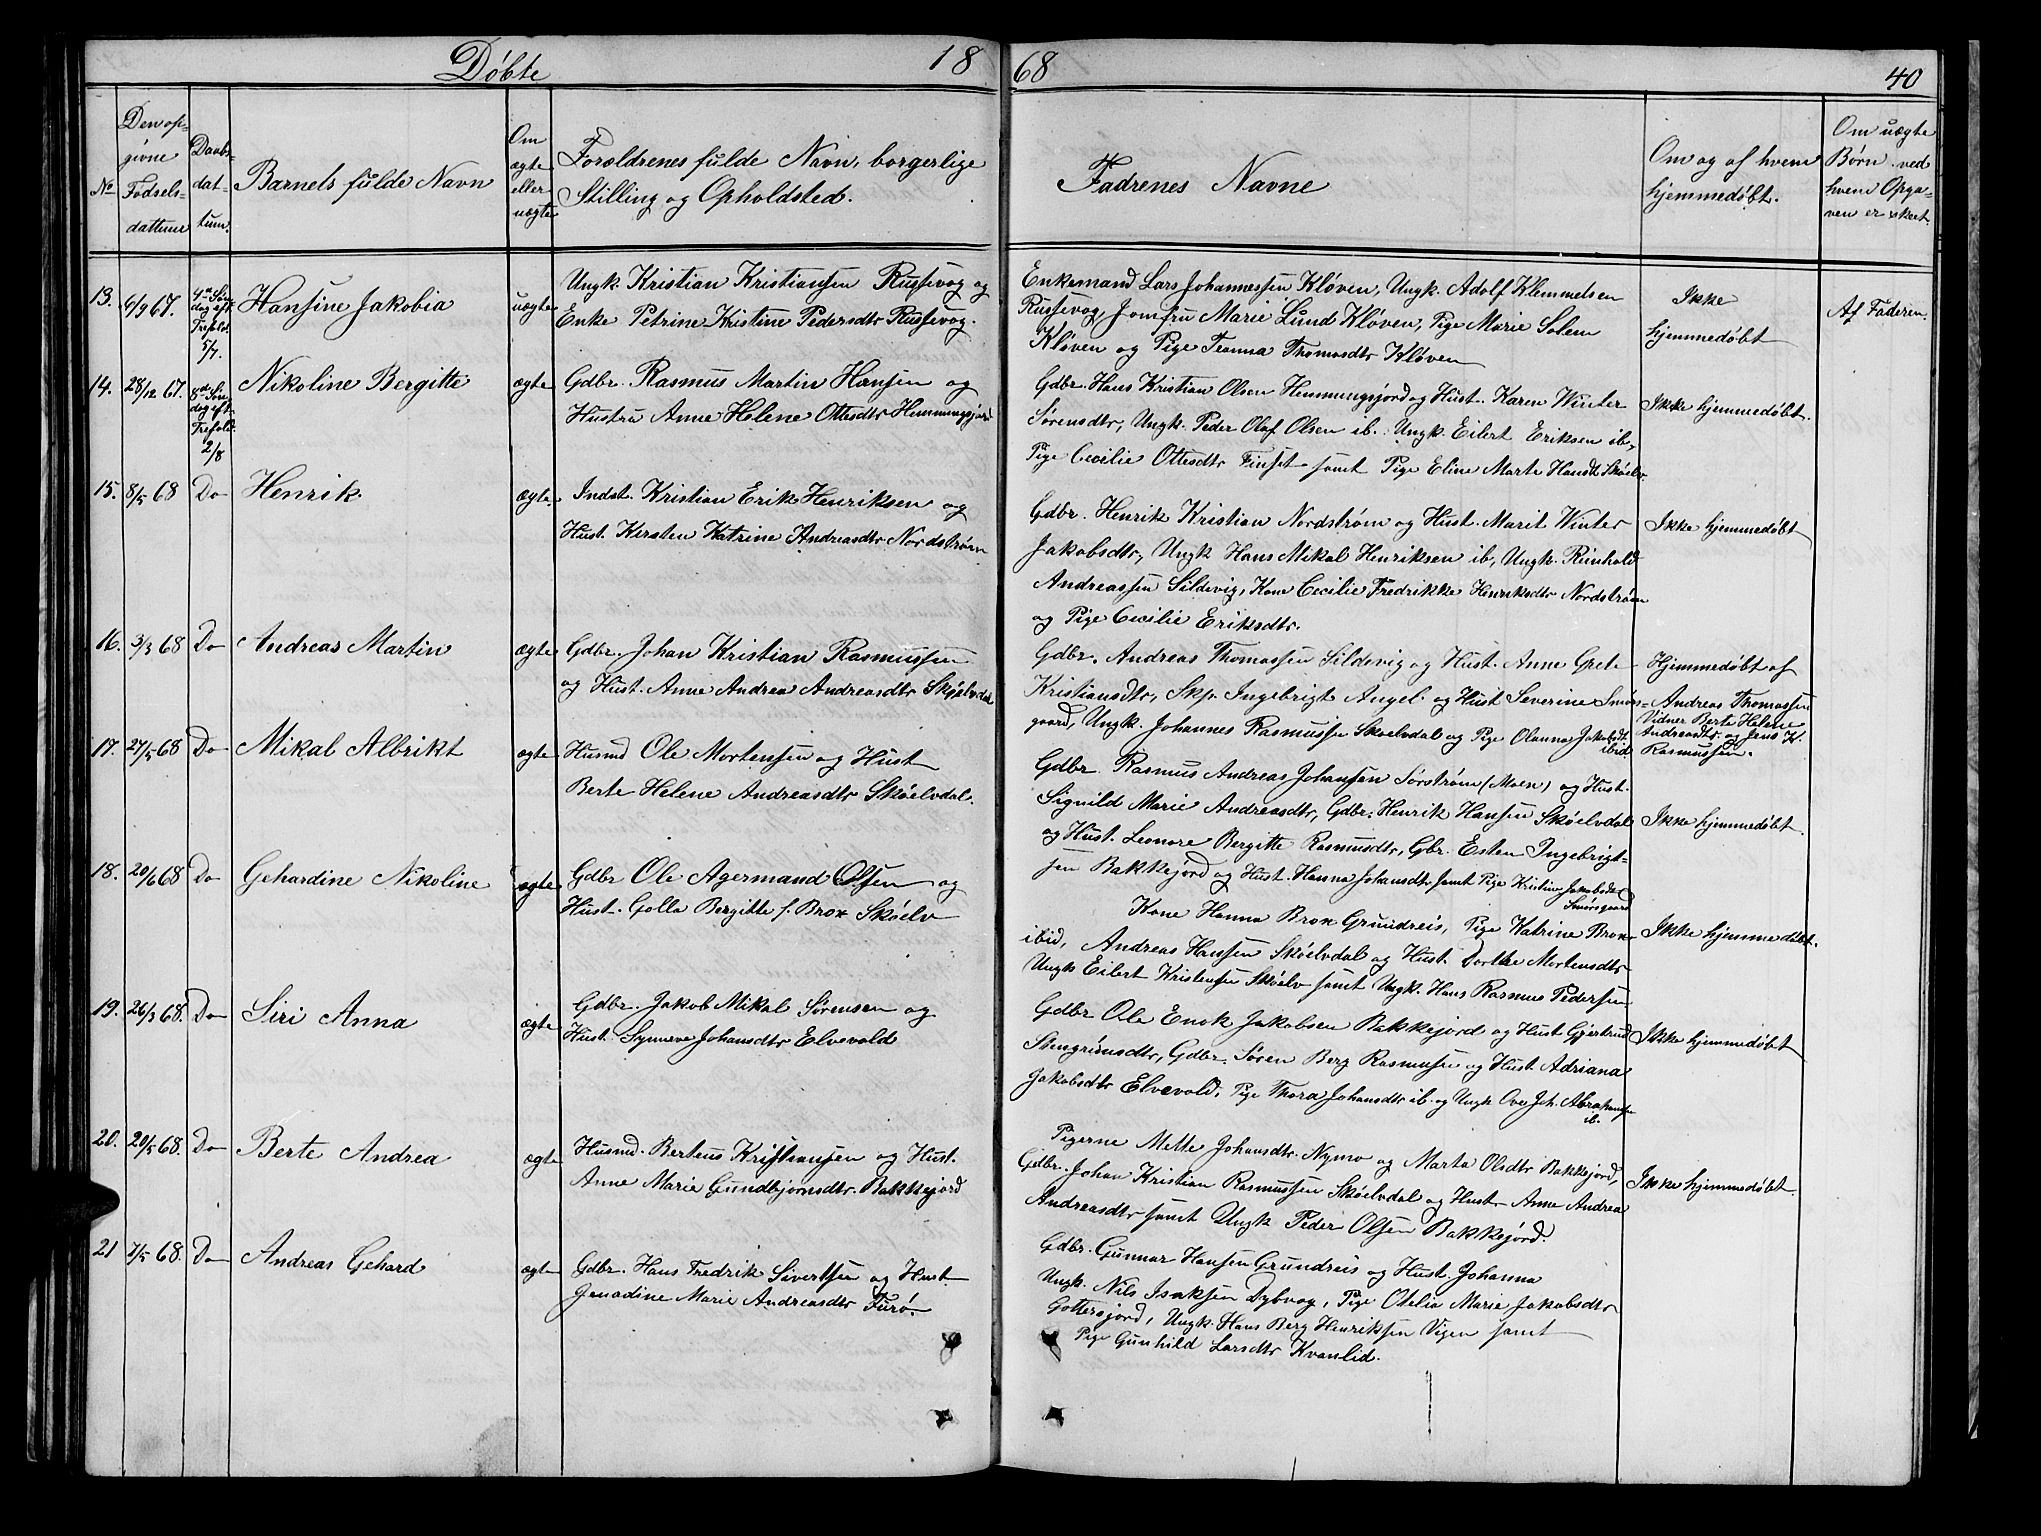 Døbte 18 68 40
No
Den op-
givne
Fødsels-
dattum
Daabs-
dat-
tum.
Barnets fulde Navn
Om
ægte
eller
uægte
Forældrenes fulde Navn, borgerlige
Stilling og Opholdsted.
Fadrenes Navne
Om og af hvem
hjemmedøbt.
Om uægte
Børn ved
hvem Opga-
ven er skeet.
13. 6/9 67. 4de Søn-
dag eft.
Trefold.
5/7.
Hansine Jakobia
uægte
Ungk. Kristian Kristiansen Russevog og
Enke Petrine Kristine Pedersdtr Russevog.
Enkemand Lars Johannessen Kløven, Ungk. Adolf Klemmetsen
Russevog, Jomfru Marie Lund Kløven, Pige Marie Solem
Kløven og Pige Teanna Thomasdtr Kløven
Ikke
hjemmedøbt
Af Faderen.
14. 28/12 67. 8de Søn-
dag eft.
Trefold.
2/8
Nikoline Bergitte
ægte
Gdbr. Rasmus Martin Hansen og
Hustru Anne Helene Ottesdtr Hemmingsjord
Gdbr. Hans Kristian Olsen Hemmingsjord og Hust. Karen Winter
Sørensdtr, Ungk. Peder Olaf Olsen ib. Ungk. Eilert Eriksen ib.,
Pige Cecilie Ottesdtr Finset samt Pige Eline Marte Hansdt Skøelv
Ikke hjemmedøbt.
15. 8/5 68 Do Henrik
ægte.
Indst. Kristian Erik Henriksen og
Hust. Kirsten Katrine Andreasdtr Nordstrøm
Gdbr. Henrik Kristian Nordstrøm og Hust. Marit Winter
Jakobsdtr, Ungk Hans Mikal Henriksen ib, Ungk. Reinhold
Andreassen Sildevig, Kone Cecilie Fredrikke Henriksdtr Nordstrøm
og Pige Cecilie Eriksdtr.
Ikke hjemmedøbt
16. 3/3 68 Do Andreas Martin
ægte
Gdbr. Johan Kristian Rasmussen
og Hust. Anne Andrea Andreasdtr Skøelvdal
Gdbr. Andreas Thomassen Sildevig og Hust. Anne Grete
Kristiansdtr, Skp. Ingebrigt Angel. og Hust Severine Smørs-
gaard, Ungk. Johannes Rasmussen Skøelvdal og Pige Olanna Jakobsdt
ibid.
Hjemmedøbt af
Andreas Thomassen
Vidner Berte Helene
Andreasdtr. og Jens K.
Rasmussen.
17. 27/5 68 Do Mikal Albrikt
ægte
Husmd Ole Mortensen og Hust
Berte Helene Andreasdtr Skøelvdal.
Gdbr Rasmus Andreas Johansen Sørstrøm (Moen) og Hust.
Signild Marie Andreasdtr, Gdbr. Henrik Hansen Skøelvdal
og Hust. Leonore Bergitte Rasmusdtr, Gbr. Esten Ingebrigt-
sen Bakkejord og Hust. Hanna Johansdtr. samt Pige Kristine Jakobsdtr
Smørsgaard
Ikke hjemmedøbt.
18. 20/6 68 Do Gehardine Nikoline
ægte
Gdbr Ole Agermand Olsen og
Hust. Golla Bergitte f. Brox Skøelv
Kone Hanna Brox Grundreis, Pige Katrine Brox
ibid, Andreas Hansen Skøelvdal og Hust. Dorthe Mortensdtr
Ungk Eilert Kristensen Skøelv samt Ungk. Hans Rasmus Pedersen
Ikke hjemmedøbt.
19. 26/3 68. Do Siri Anna
ægte
Gdbr. Jakob Mikal Sørensen og
Hust. Synneve Johansdtr Elvevold
Gdbr Ole Enok Jakobsen Bakkejord og Hust Gjertrud
Stengrimsdtr, Gdbr. Søren Berg Rasmussen og Hust Adriana
Jakobsdtr Elvevold, Pige Thora Johansdtr ib. og Ungk Ove Joh. Abrahamsen
ib.
Ikke hjemmedøbt
20. 20/5 68. Do Berte Andrea
ægte
Husmd. Berteus Kristiansen og Hust.
Anne Marie Gundbjørnsdtr. Bakkejord
Pigerne Mette Johansdtr. Nymo og Marta Olsdtr Bakkejord,
Gdbr. Johan Kristian Rasmussen Skøelvdal og Hust. Anne Andrea
Andreasdtr samt Ungk Peder Olsen Bakkejord.
Ikke hjemmedøbt.
21 7/5 68. Do Andreas Gehard
ægte
Gdbr. Hans Fredrik Sivertsen og Hust
Genadine Marie Andreasdtr Furø.
Gdbr. Gunnar Hansen Grundreis og Hust. Johanna
Ungk. Nils Isaksen Dybvog, Pige Otelia Marie Jakobsdtr
Gottersjord, Ungk. Hans Berg Henriksen Vigen samt
Pige Gunhild Larsdtr Kvanlid.